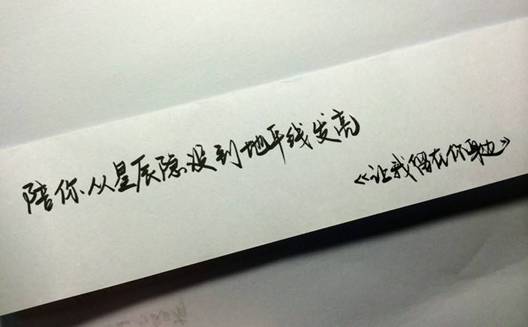 陪你从星辰隐没到地平线发亮
《让我留在你身边》